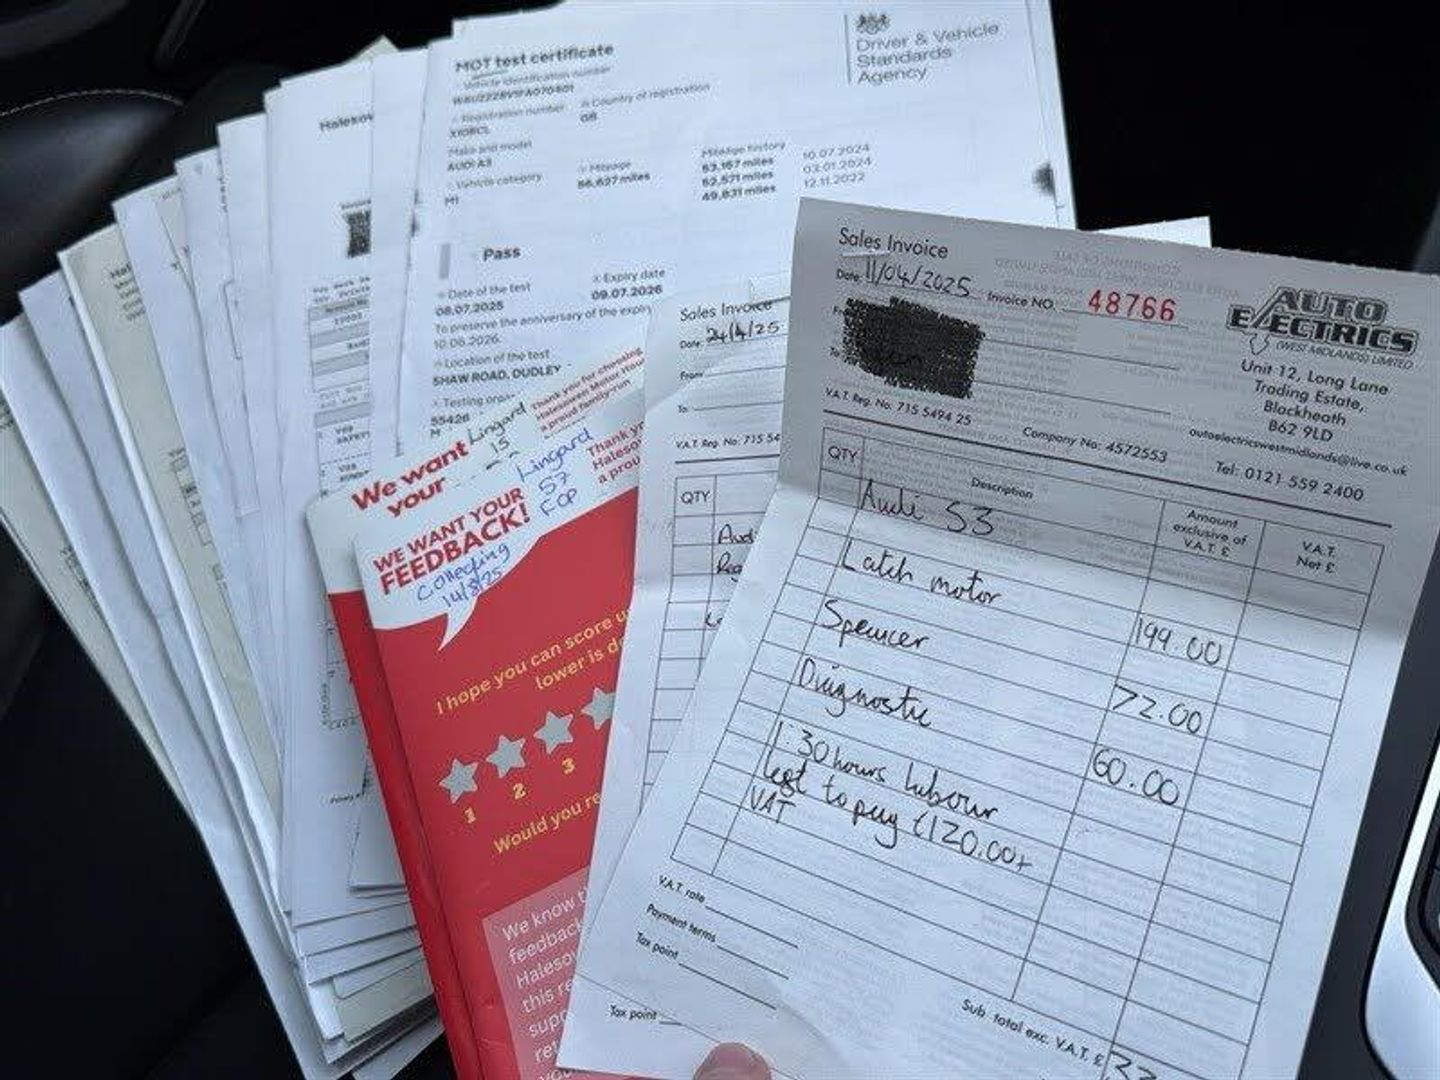 MOT test certificate
Vehicle identification number
Registration number
Country of registration
GB
Make and model
AUDI A3
Vehicle category
M1
Mileage
56,627 miles
Mileage history
53,167 miles 10.07.2024
52,571 miles 03.01.2024
49,831 miles 12.11.2022
Driver & Vehicle
Standards
Agency
Pass
Date of the test
08.07.2025
Expiry date
09.07.2026
To preserve the anniversary of the expiry
10.06.2026.
Location of the test
SHAW ROAD, DUDLEY
Testing
55426
Halesow
We want
your
Lingard
15
Thank you for choosing
Halesowen Motor Hou
a proud family-run
WE WANT YOUR
FEEDBACK!
Lingard
57
Thank y
Haleso
a prou
Collecting
14/8/25
I hope you can score u
lower is d
1 2 3
Would you re
We know t
feedback
Haleso
this re
supp
ret
Sales Invoice
Date 24/4/25
From
To
V.A.T. Reg. No: 715 54
QTY
Aud
Reg
Sales Invoice
Date 11/04/2025
Invoice NO. 48766
AUTO
ELECTRICS
(WEST MIDLANDS) LIMITED
Unit 12, Long Lane
Trading Estate,
Blackheath
B62 9LD
autoelectricswestmidlands@live.co.uk
Tel: 0121 559 2400
To
V.A.T. Reg. No: 715 5494 25
Company No: 4572553
QTY Description Amount exclusive of V.A.T. £ V.A.T. Net £
Audi S3
Latch motor 199.00
Spencer 72.00
Diagnostic 60.00
1:30 hours labour
left to pay (120.00+
VAT
V.A.T. rate
Payment terms
Tax point
Sub total exc. V.A.T. £
Tax point